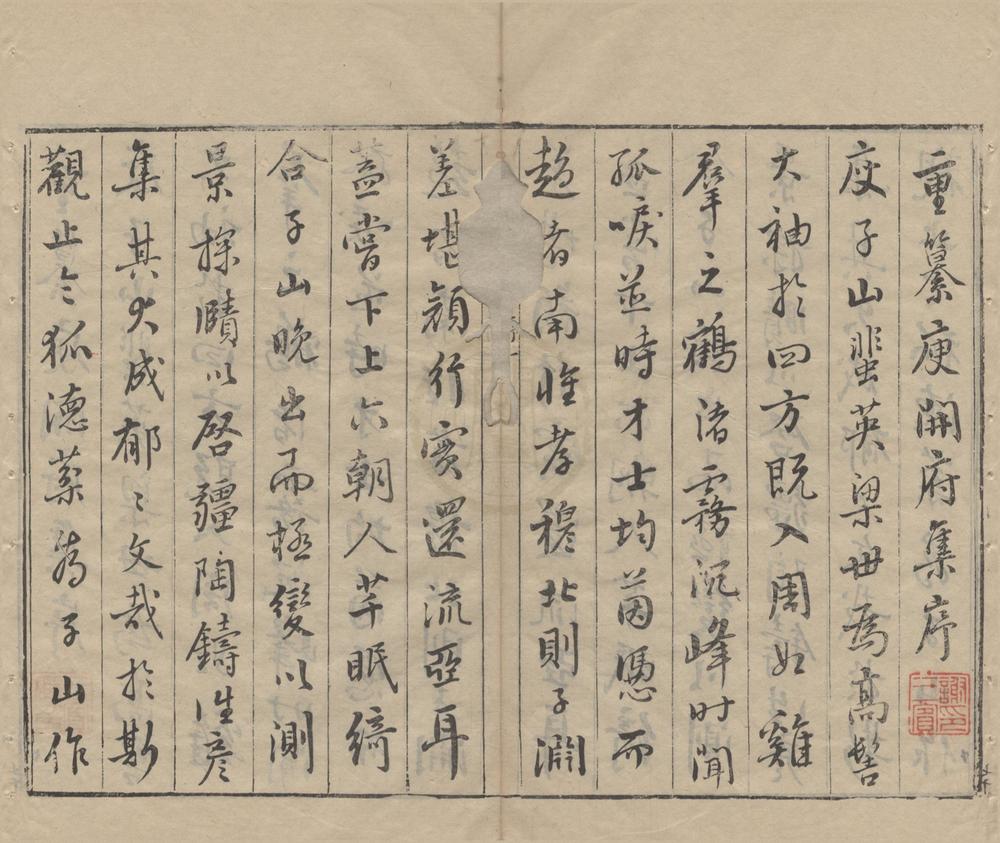 重纂庾開府集序
庾子山蜚英梁世爲高髻
大袖於四方既入周如雞
羣之鶴渚霧沉峰时聞
孤唳並時才士均茵憑而
趨者南惟孝穆北則子淵
差堪頡行實還流亞耳
蓋嘗下上六朝人芊眠綺
合子山晚出而極變以測
景探賾以啓疆陶鑄性彦
集其大成郁〻文哉於斯
觀止令狐德棻為子山作